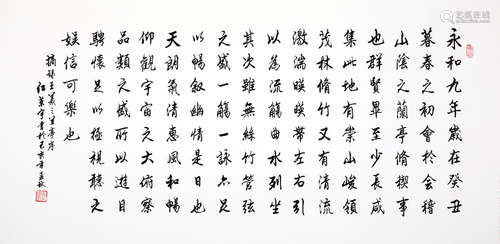 永和九年歲在癸丑
暮春之初會於會稽
山陰之蘭亭脩禊事
也群賢畢至少長咸
集此地有崇山峻領
茂林脩竹又有清流
激湍暎帶左右引
以為流觴曲水列坐
其次雖無絲竹管弦
之盛一觴一詠亦足
以暢敘幽情是日也
天朗氣清惠風和暢
仰觀宇宙之大俯察
品類之盛所以遊目
騁懷足以極視聽之
娛信可樂也
摘錄王羲之蘭亭序